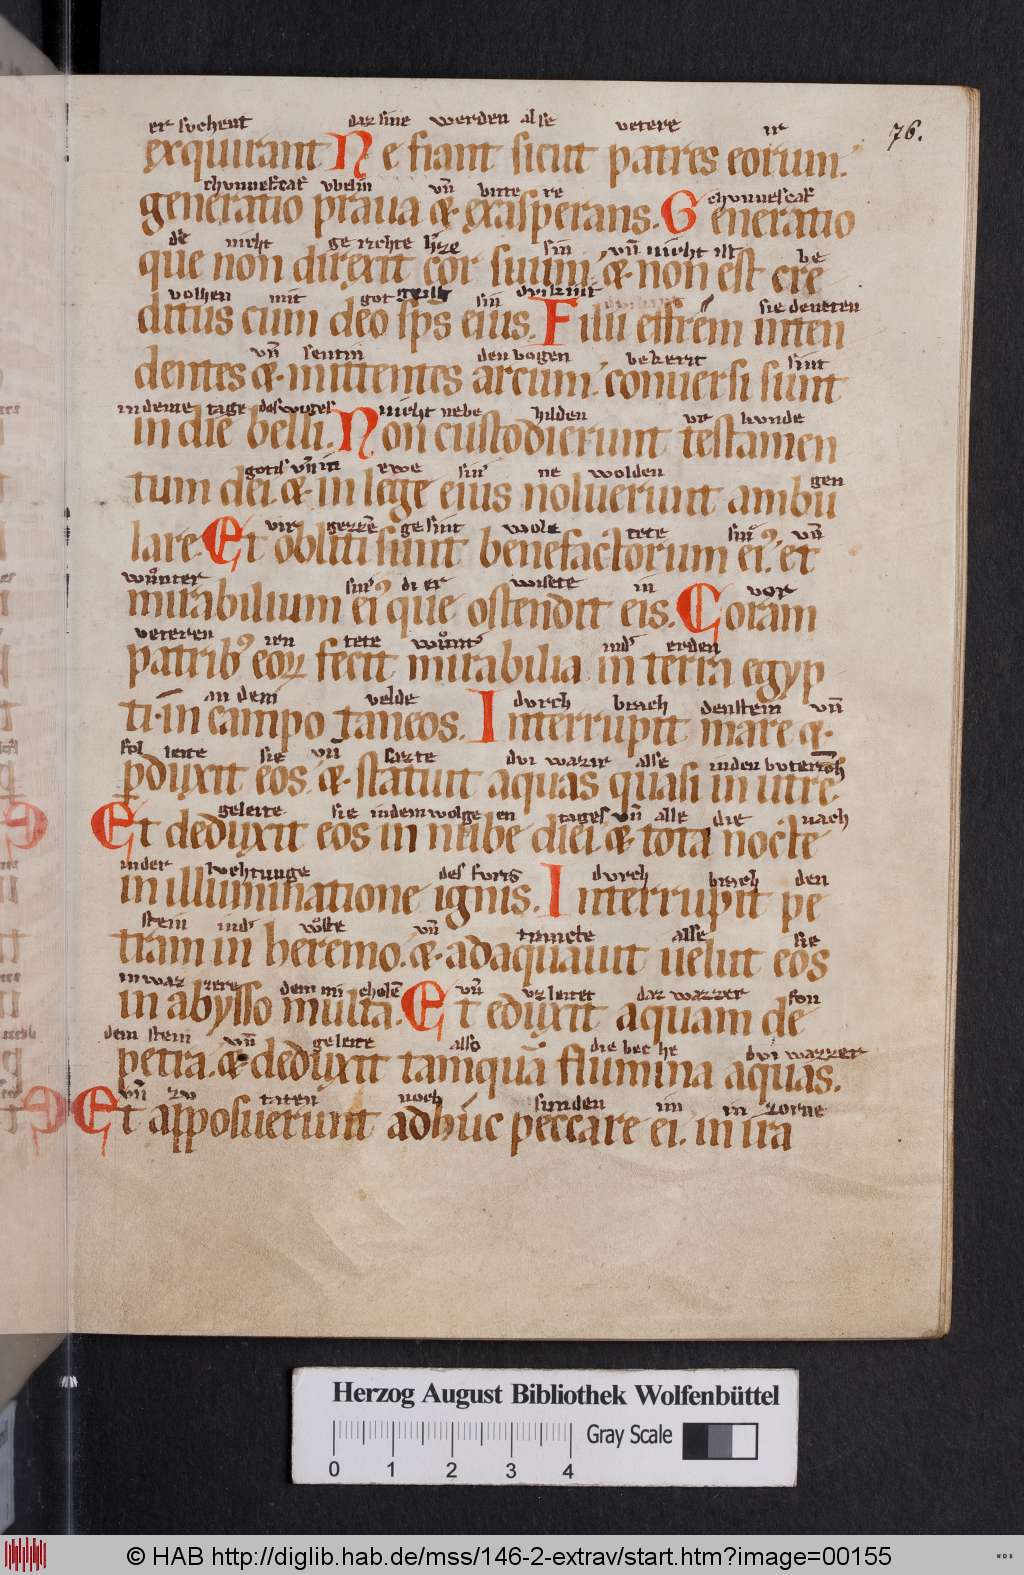 er suchent daz sine werden alse vetere ir
76.
exquirant Ne fiant sicut patres eorum.
chunnescaf vbelin vn̄ bitte re chunnescaf
generatio praua &. exasperans. Generatio
nicht ge richte h̄ze sin vn̄ nicht ist be
que non direxit cor suum. &. non est cre
volhen mit got geist sin
ditus cum deo sp̄s eius. Filii effrem inten
sie deneten
vn̄ sentin den bogen bekerit sint
dentes &. mittentes arcum. conuersi sunt
in deme tage des wiges nicht nebe hilden vr kunde
in die belli. Non custodierunt testamen
gotis vn̄ in ewe sin' ne wolden gen
tum dei &. in lege eius noluerunt ambu
vir gezzē ge sint wole tete vn̄
lare. Et obliti sunt benefactorum ei'. et
wūnter sin' di er wisete in vor
mirabilium ei' que ostendit eis. Coram
veteren iren tete in d' erden
patrib' eoꝝ fecit mirabilia in terra egyp
an dem velde durch brach den stein vn̄
ti. in campo taneos. Interrupit mare &.
leite sie vn̄ sazte dui wazir alse
ꝑduxit eos. &. statuit aquas quasi in utre
geleite sie in dem wolge en tages vn̄ alle die nach
Et deduxit eos in nube diei &. tota nocte
in der luchtunge des furis durch brach den
in illuminatione ignis. Interrupit pe
stein in d' vn̄ trancte alse sie
tram in heremo. &. adaquauit uelut eos
in waz zere dem mi cholē vn̄ vz leitet daz wazzer fon
in abysso multa. Et eduxit aquam de
dem stein vn̄ geleite also die beche dui wazzer
petra. &. deduxit tamquā flumina aquas.
vn̄ zv taten noch sunden im in zorne
Et apposuerunt adhuc peccare ei. in ira
Herzog August Bibliothek Wolfenbüttel
Gray Scale
0 1 2 3 4
© HAB http://diglib.hab.de/mss/146-2-extrav/start.htm?image=00155